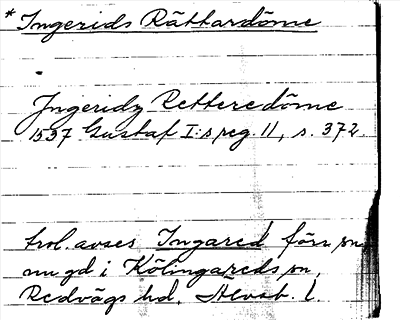 * Ingerids Rättardöme
Jngeridz Retteredöme
1537 Gustaf I:s reg. 11, s. 372
trol. avses Ingared förr sn
nu gd i Kölingareds sn,
Redvägs hd, Älvsb. l.